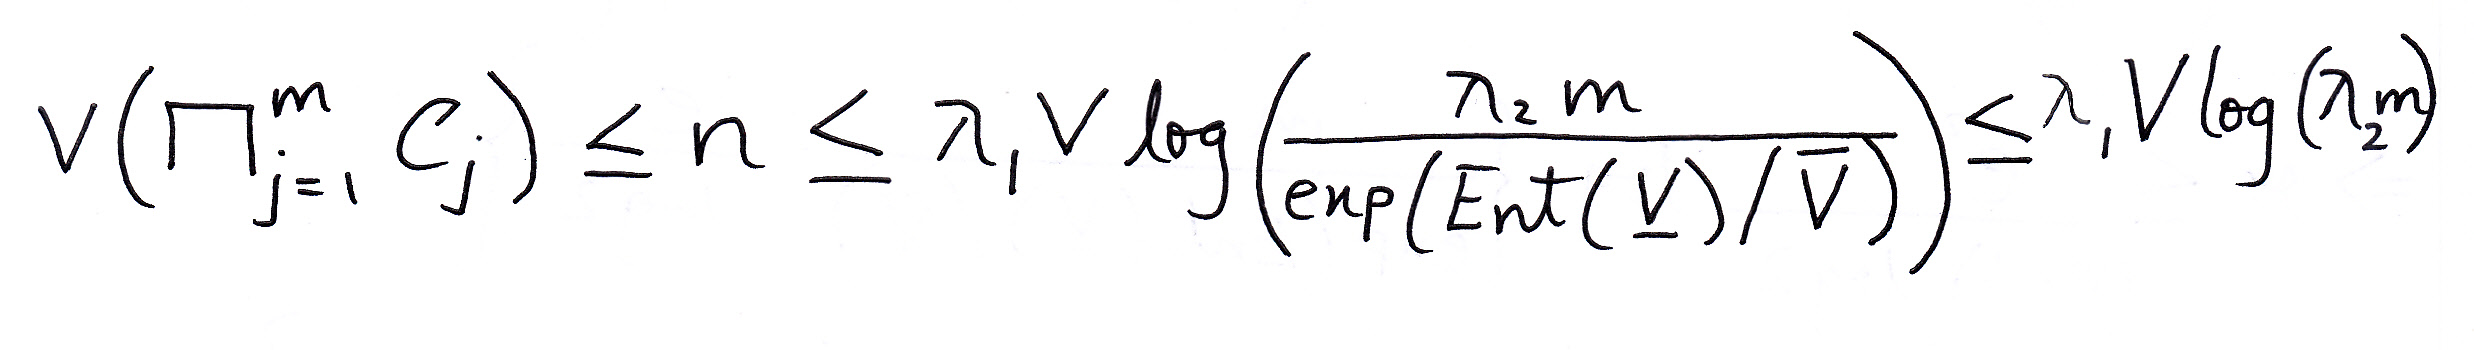 V(∏_{j=1}^{m} C_j) ≤ n ≤ λ_1 V log(λ_2 m / exp(Ent(V̲)/V̄)) ≤ λ_1 V log(λ_2 m)